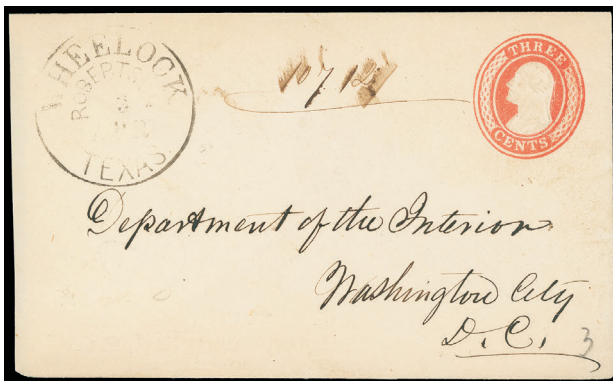 WHEELOCK
ROBERTS
3
TEXAS.
THREE
CENTS
Department of the Interior
Washington City
D. C.
3